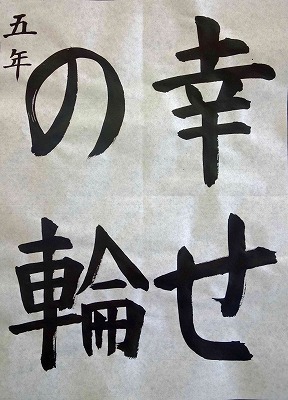 幸せ
の輪
五年